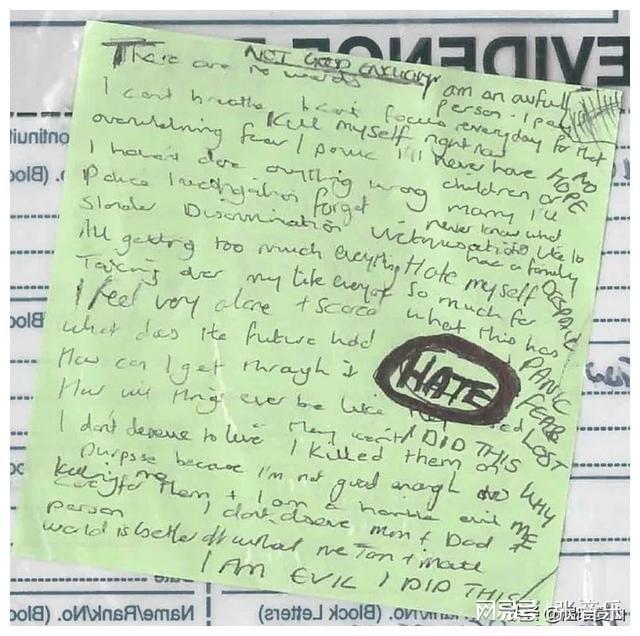 NOT GOOD ENOUGH
There are no words
I cant breathe I cant focus
Kill myself right now
overwhelming fear / panic
I'll never have
children or
marry I'll
never know what
its like to
have a family
I am an awful
person. I pay
everyday for that
NO
HOPE
I havent done anything wrong
Police investigation forget
Slander Discrimination Victimisation
All getting too much everything
Hate myself
so much for
what this has
Taking over my life everyday
I feel very alone + scared
What does the future hold
How can I get through it
How will things ever be like
HATE
DESPAIR
PANIC
FEAR
LOST
WHY
ME
they
I DID THIS
I dont deserve to live I killed them on
purpose because I'm not good enough to
care for them + I am a horrible evil
person I dont deserve mum + Dad
killing me
world is better off without me
I AM EVIL I DID THIS
EVIDENCE
Continuit
No. (Bloc
Name/Rank/No. (Block Letters)
Date
网易号